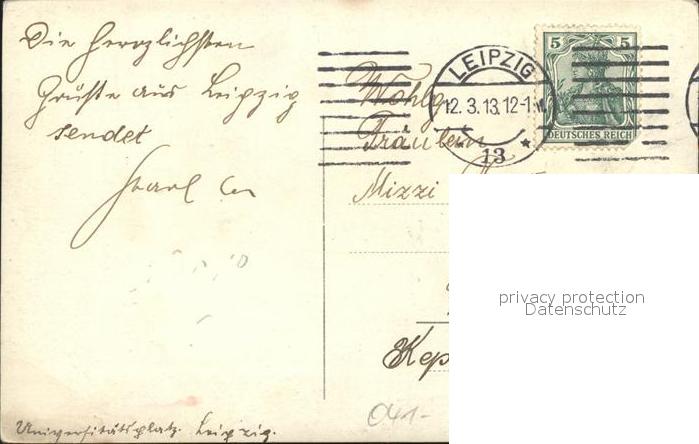 Die herzlichsten
Grüße aus Leipzig
sendet
Karl
Wohlg.
Fräulein
Mizzi
Kep
LEIPZIG
12.3.13.12-1
13
5 5
DEUTSCHES REICH
privacy protection
Datenschutz
041-
Universitätsplatz. Leipzig.